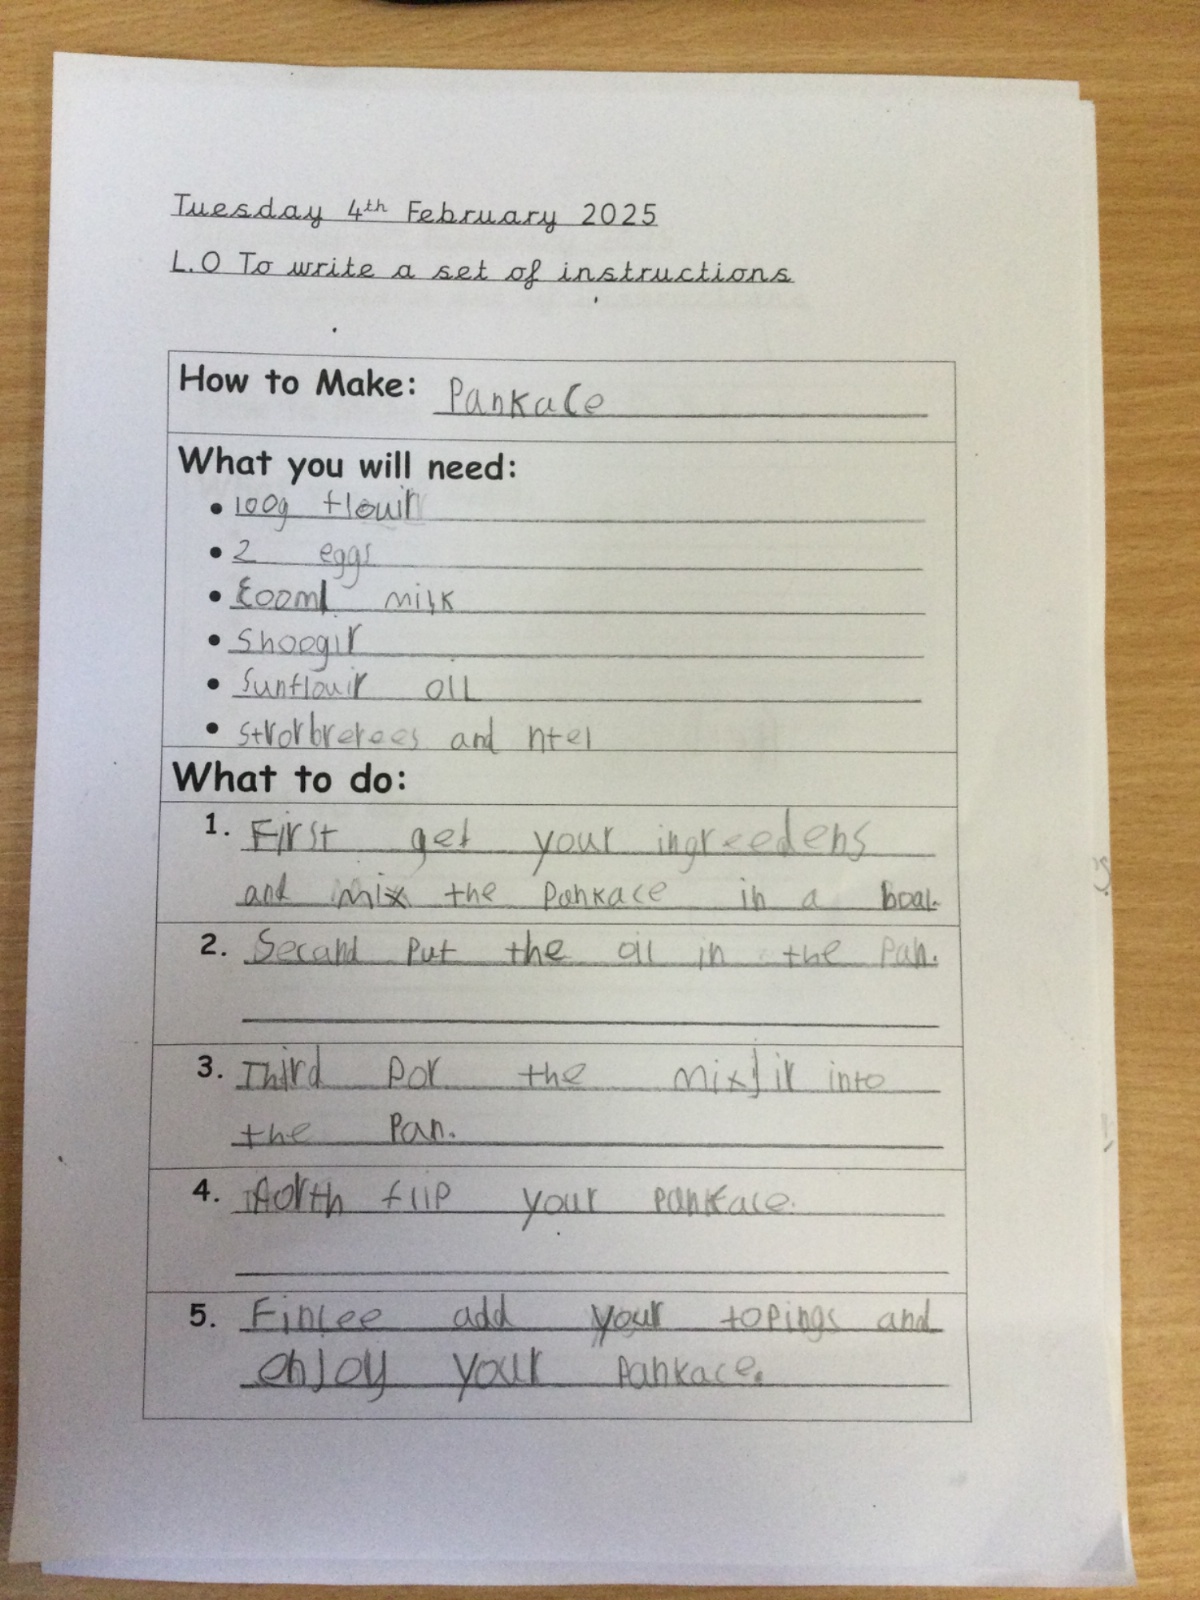 Tuesday 4th February 2025
L.O To write a set of instructions
How to Make: Pankace
What you will need:
• 100g flouir
• 2 eggs
• milk
• Shoogir
• Sunflouir oil
• strorbrerees and
What to do:
1. First get your ingreedens
and mix the pankace in a boal.
2. Second put the oil in the pan.
3. Third por the mixjir into
the pan.
4. forth flip your pankace.
5. Finlee add your topings and
enjoy your pankace.